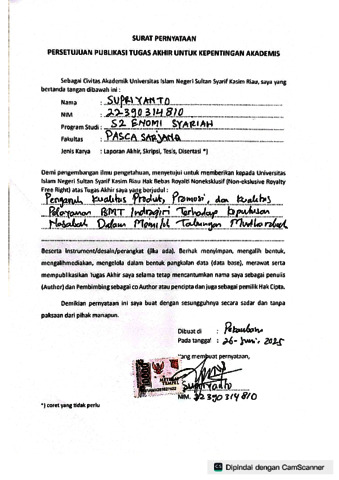 SURAT PERNYATAAN
PERSETUJUAN PUBLIKASI TUGAS AKHIR UNTUK KEPENTINGAN AKADEMIS
Sebagai Civitas Akademik Universitas Islam Negeri Sultan Syarif Kasim Riau, saya yang
bertanda tangan dibawah ini :
Nama : SUPRIYANTO
NIM : 22390314810
Program Studi : S2 ENOMI SYARIAH
Fakultas : PASCA SARJANA
Jenis Karya : Laporan Akhir, Skripsi, Tesis, Disertasi *)
Demi pengembangan ilmu pengetahuan, menyetujui untuk memberikan kepada Universitas
Islam Negeri Sultan Syarif Kasim Riau Hak Bebas Royalti Noneksklusif (Non-ekslusive Royalty
Free Right) atas Tugas Akhir saya yang berjudul :
Pengaruh Kualitas Produk, Promosi, dan Kualitas
Pelayanan BMT Indragiri Terhadap Keputusan
Nasabah Dalam Memilih Tabungan Mudharabah
Beserta instrument/desain/perangkat (jika ada). Berhak menyimpan, mengalih bentuk,
mengalihmediakan, mengelola dalam bentuk pangkalan data (data base), merawat serta
mempublikasikan Tugas Akhir saya selama tetap mencantumkan nama saya sebagai penulis
(Author) dan Pembimbing sebagai co Author atau pencipta dan juga sebagai pemilik Hak Cipta.
Demikian pernyataan ini saya buat dengan sesungguhnya secara sadar dan tanpa
paksaan dari pihak manapun.
Dibuat di :
Pada tanggal : 26-Juni-2025
Yang membuat pernyataan,
METERAI
TEMPEL
Supriyanto
NIM. 22390314810
*) coret yang tidak perlu
CS Dipindai dengan CamScanner